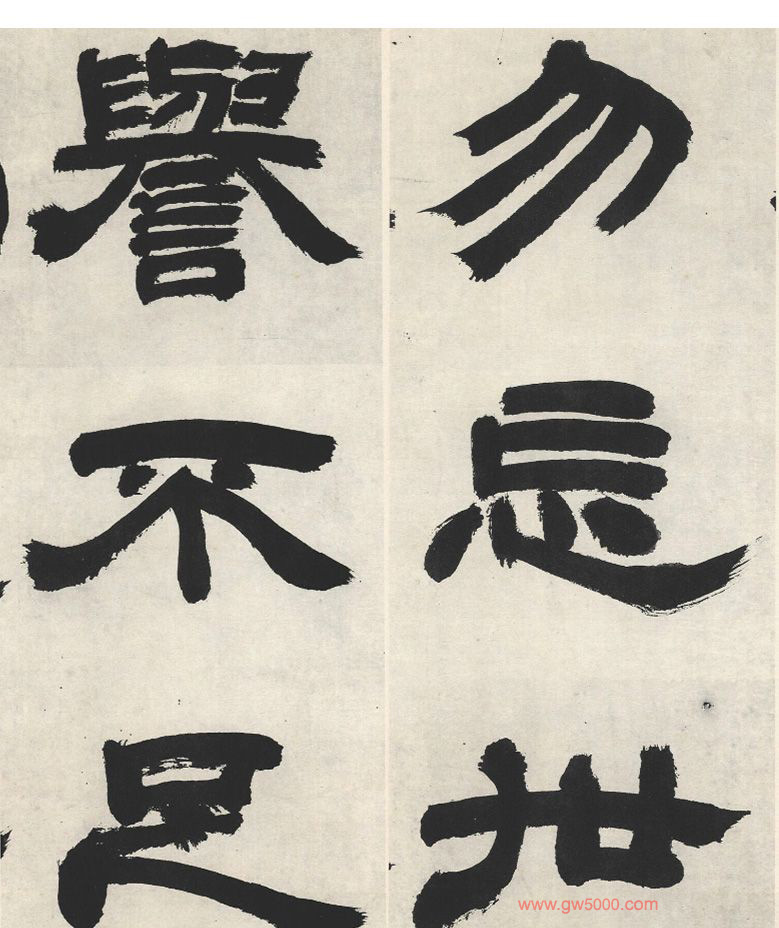 勿忘世
譽不足
www.gw5000.com